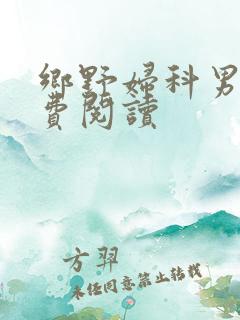 鄉野婦科男
費閱讀
方羿
未任同意禁止转载